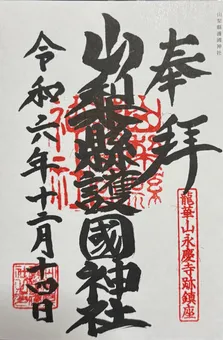 山梨縣護國神社
奉拝
山梨縣護國神社
龍華山永慶寺跡鎮座
令和六年十二月十四日